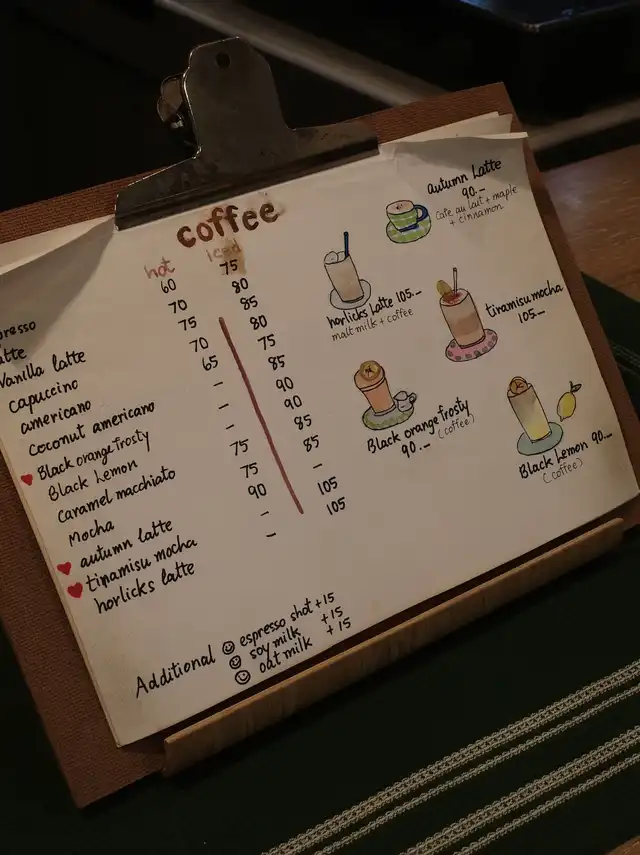 coffee
hot iced
resso 60 75
atte 70 80
Vanilla latte 75 85
Capuccino 70 80
americano 65 75
Coconut americano - 85
♥ Black orange frosty - 90
Black Lemon - 90
Caramel macchiato 75 85
Mocha 75 85
♥ autumn latte 90 -
♥ tinamisu mocha - 105
horlicks latte - 105
Additional ☺ espresso shot +15
☺ soy milk +15
☺ oat milk +15
autumn Latte
90.-
Cafe au lait + maple
+ cinnamon
horlicks Latte 105.-
malt milk + coffee
tiramisu mocha
105.-
Black orange frosty
90.- (coffee)
Black Lemon 90.-
(coffee)